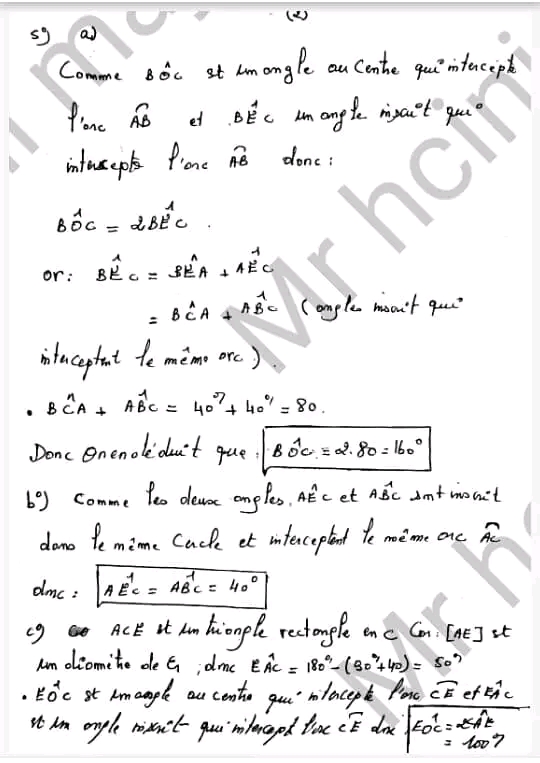 (2)
5) a)
Comme BÔC st un angle au Centre qui intercepte
l'arc AB et BÊC un angle inscrit qui
intercepte l'arc AB donc :
BÔC = 2BÊC .
or : BÊC = BÊA + AÊC
= BĈA + AB̂C ( angles inscrit qui
interceptent le même arc ) .
• BĈA + AB̂C = 40° + 40° = 80.
Donc on en déduit que : BÔC = 2.80 = 160°
b°) Comme les deux angles, AÊC et AB̂C sont inscrit
dans le même Cercle et interceptent le même arc AC
donc : AÊC = AB̂C = 40°
c) ACE st un triangle rectangle en C Car : [AE] st
un diamètre de ; donc EÂC = 180° - (90° + 40) = 50°
• EÔC st un angle au centre qui intercepte l'arc CE et EÂC
st un angle inscrit qui intercept l'arc CE donc EOC = 2
= 100°
Mr hcini
Mr hc